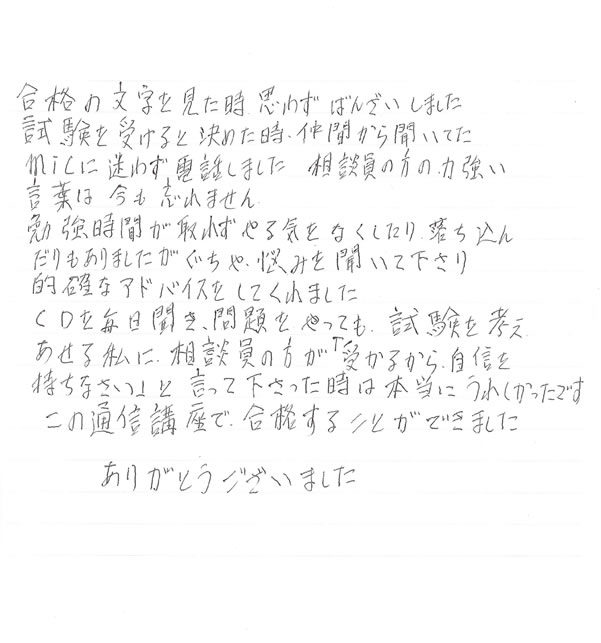 合格の文字を見た時 思わず ばんざいしました
試験を受けると決めた時、仲間から聞いてた
micに迷わず電話しました 相談員の方の力強い
言葉は今も忘れません
勉強時間が取れずやる気をなくしたり、落ち込ん
だりもありましたがぐちや、悩みを聞いて下さり
的確なアドバイスをしてくれました
CDを毎日聞き、問題をやっても、試験を考え
あせる私に、相談員の方が「受かるから、自信を
持ちなさい」と言って下さった時は本当にうれしかったです
この通信講座で、合格することができました
ありがとうございました